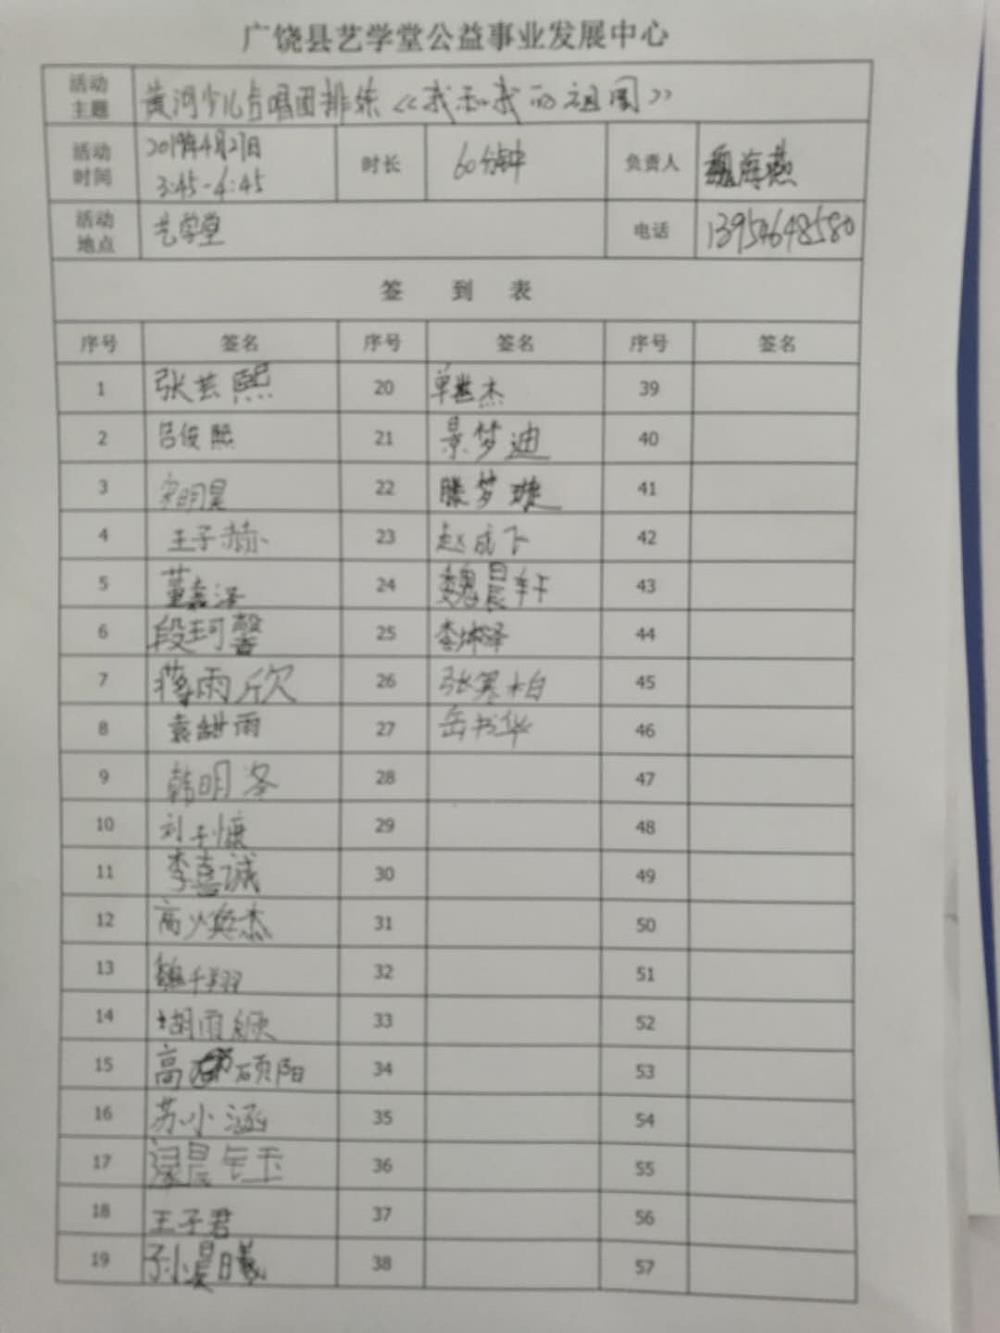 广饶县艺学堂公益事业发展中心
活动主题 黄河少儿合唱团排练《我和我的祖国》
活动时间 2019年4月27日 3:45-4:45 时长 60分钟 负责人 魏海燕
活动地点 艺学堂 电话 13954648580
签到表
序号 签名 序号 签名 序号 签名
1 张芸熙 20 单世杰 39
2 吕俊熙 21 景梦迪 40
3 宋明昊 22 滕梦璇 41
4 王子赫 23 赵成飞 42
5 董嘉泽 24 魏晨轩 43
6 段珂馨 25 李坤泽 44
7 蒋雨欣 26 张寒柏 45
8 袁甜雨 27 岳书华 46
9 韩明 28 47
10 刘子慷 29 48
11 李嘉诚 30 49
12 高焕杰 31 50
13 魏千翔 32 51
14 胡雨欣 33 52
15 高硕阳 34 53
16 苏小涵 35 54
17 晨玉 36 55
18 王子君 37 56
19 孙晨曦 38 57